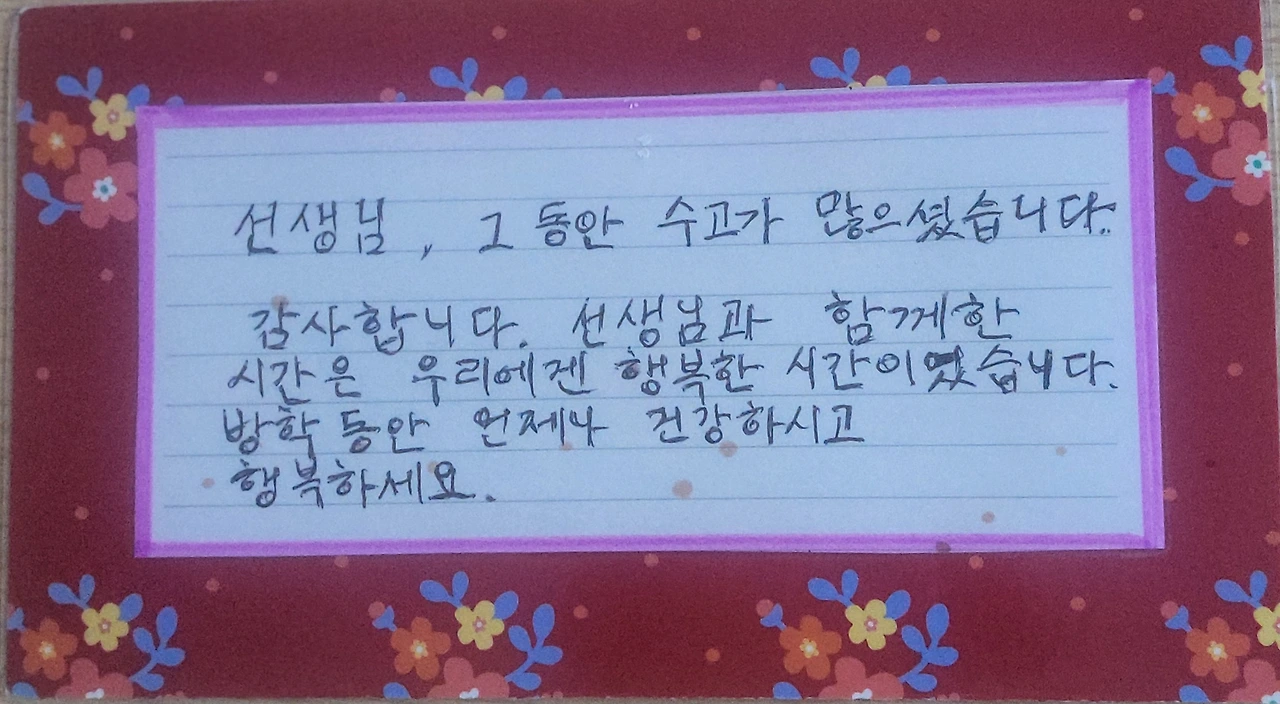 선생님, 그동안 수고가 많으셨습니다.
감사합니다. 선생님과 함께한
시간은 우리에겐 행복한 시간이였습니다.
방학동안 언제나 건강하시고
행복하세요.